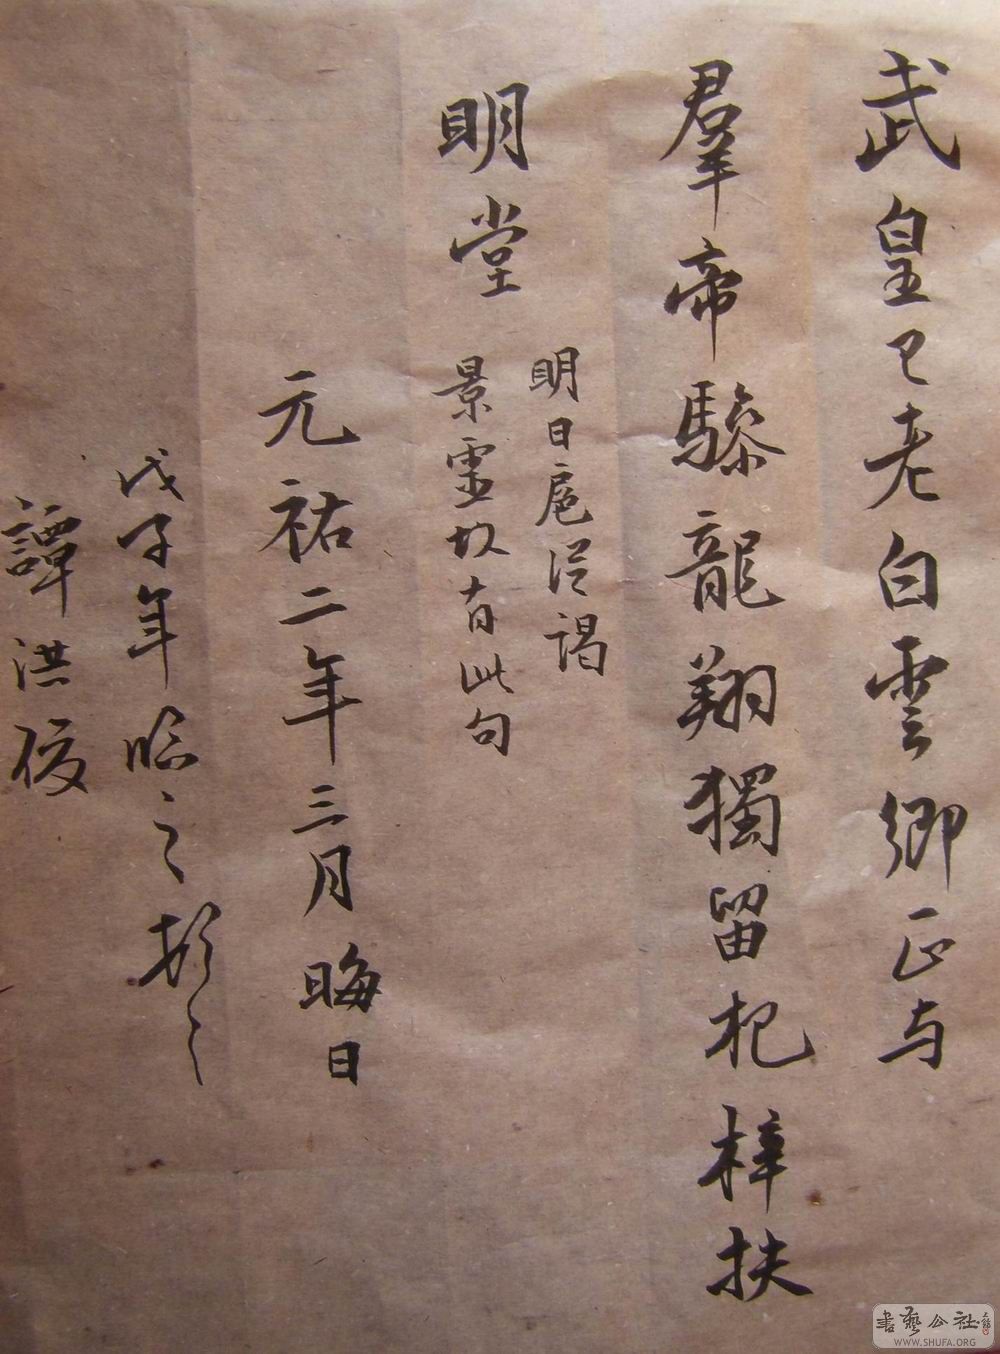 武皇已老白雲鄉正与
羣帝驂龍翔獨留杞梓扶
明堂
明日扈從謁
景靈故有此句
元祐二年三月晦日
戊子年臨之
譚洪俊
書藝公社
WWW.SHUFA.ORG